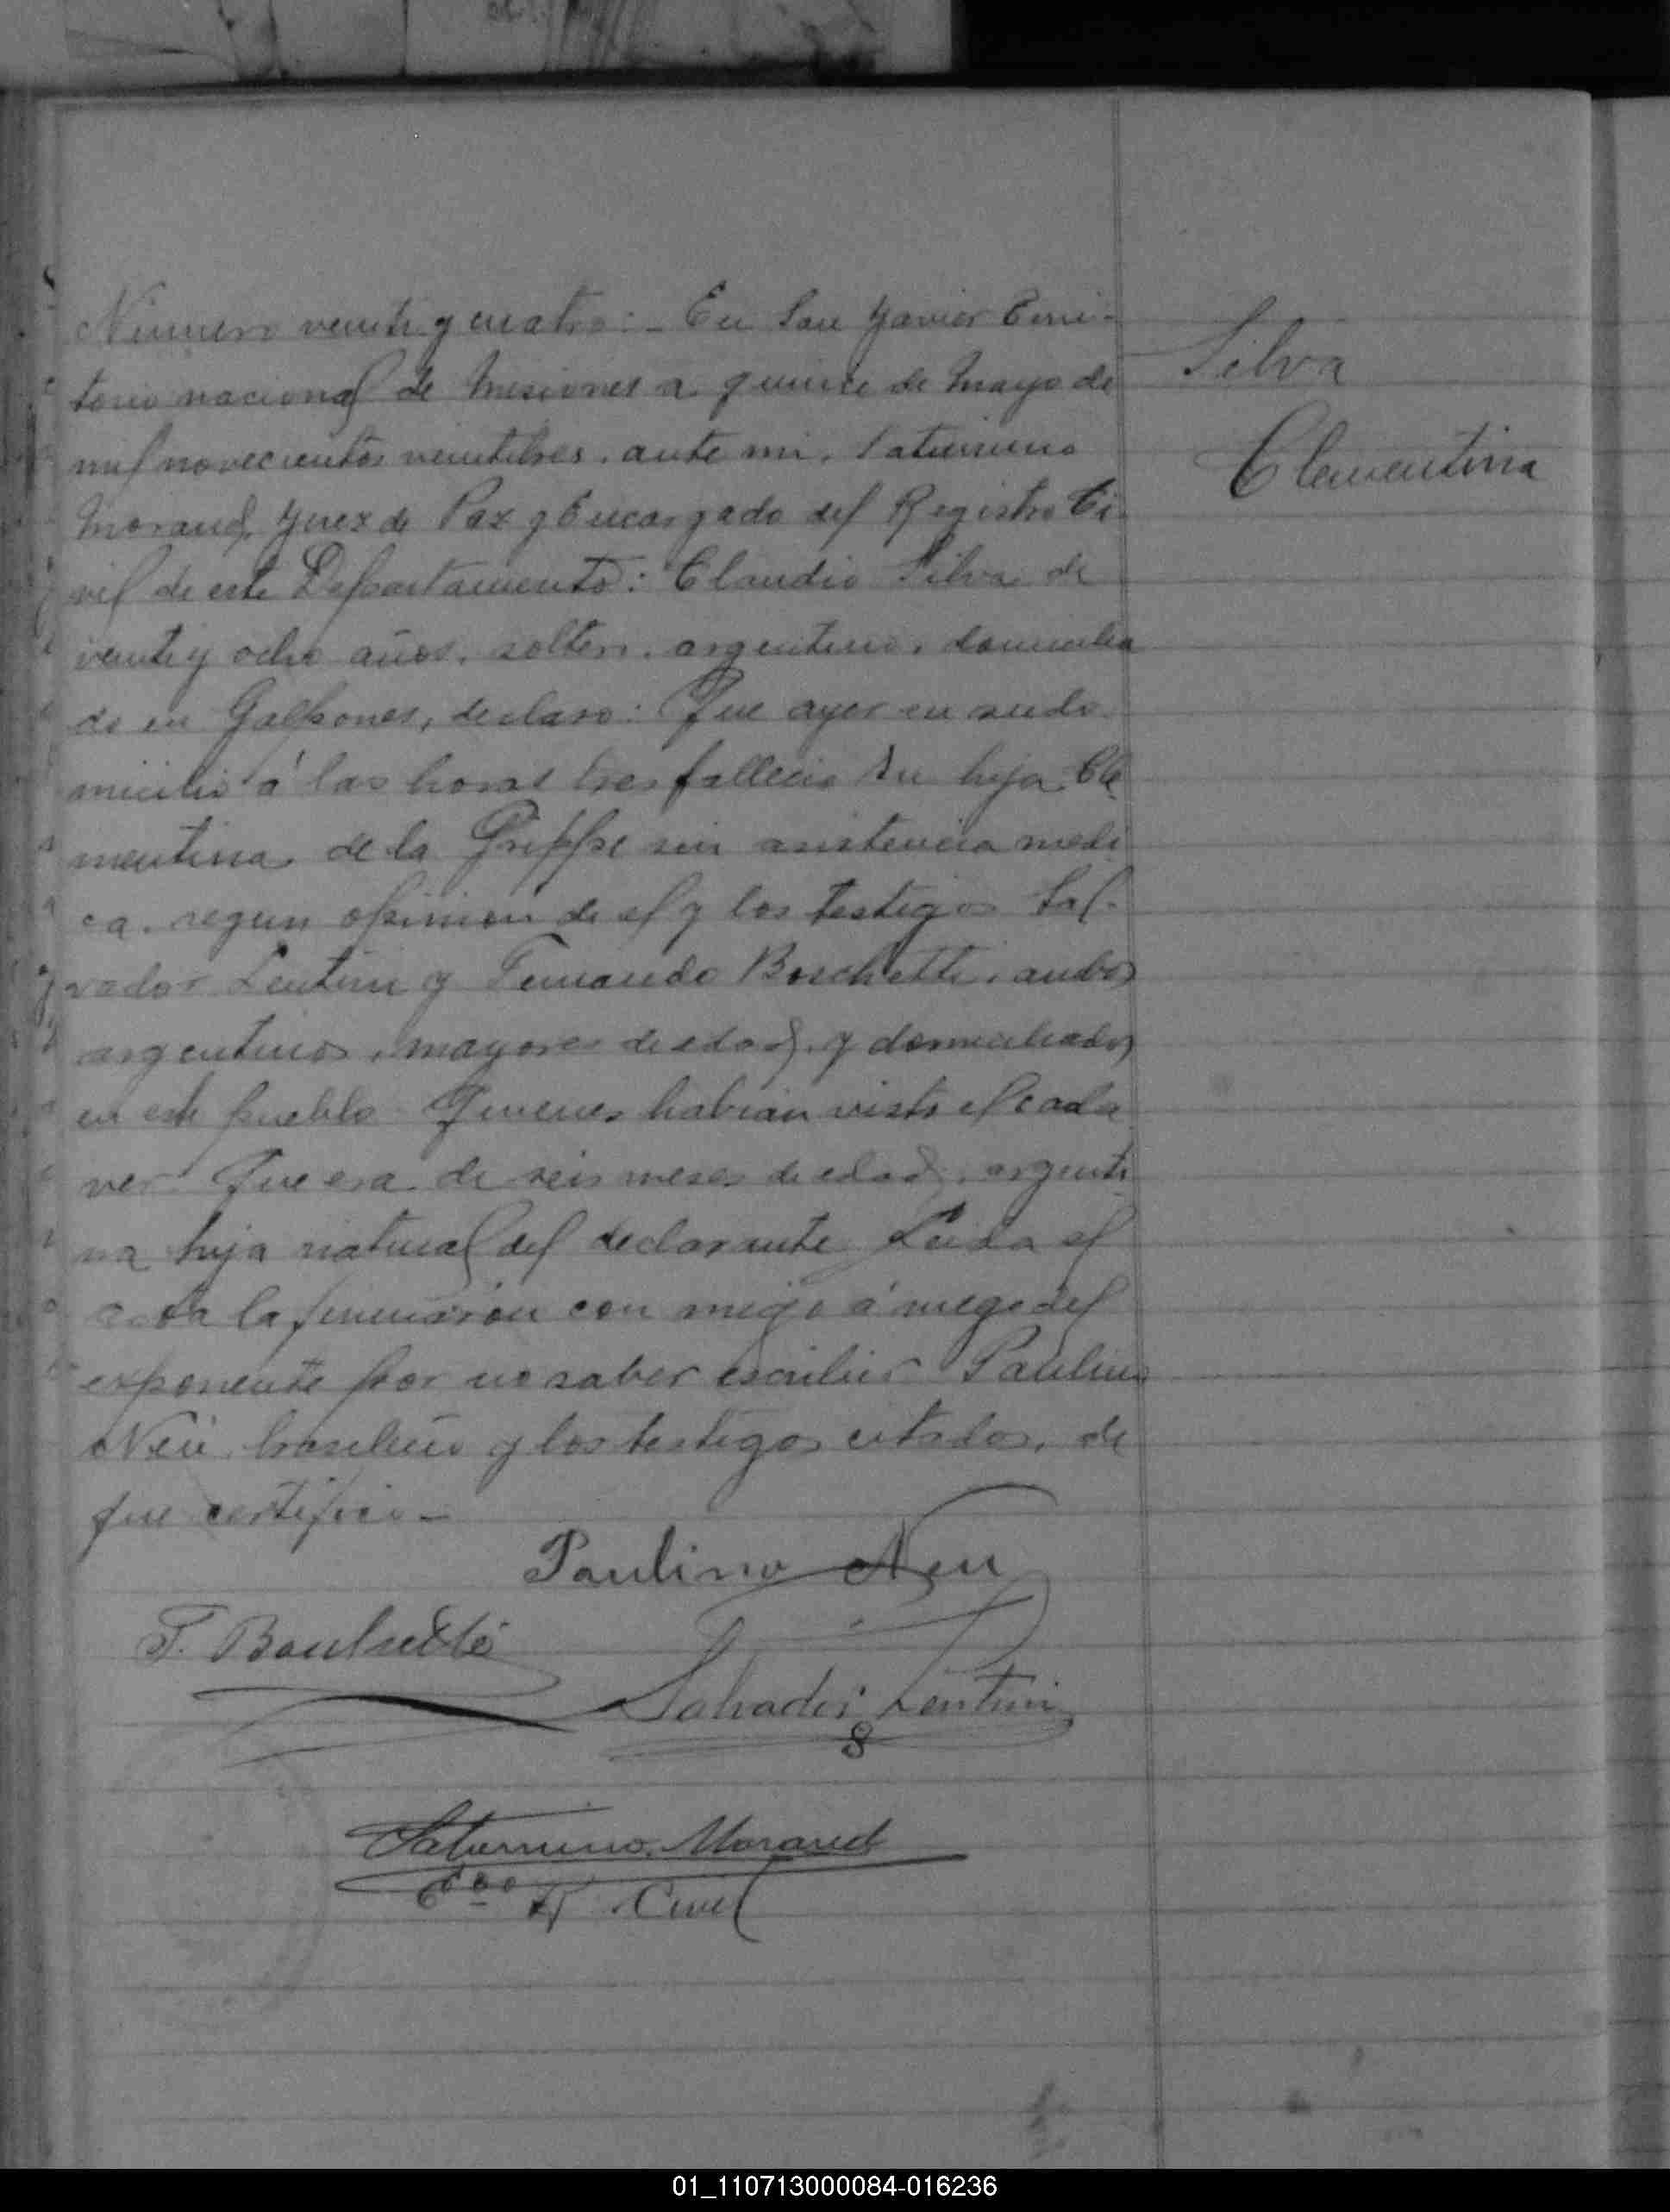 Número veinte y cuatro:- En San Javier Terri-
torio nacional de Misiones a quince de Mayo de
mil novecientos veintitres. ante mi, Saturnino
Morand, Juez de Paz y Encargado del Registro Ci-
vil de este Departamento: Claudio Silva de
veinte y ocho años, soltero, argentino, domicilia
do en Galpones, declaro: Que ayer en su do
micilio á las horas tres fallecio su hija Cle
mentina de la Grippe sin asistencia medi
ca. segun opinion de el y los testigos Sal-
vador Lentini y Fernando Boschetti, ambos
argentinos, mayores de edad, y domiciliados
en este pueblo Quienes habian visto el cada
ver Que era de seis meses de edad, argenti
na hija natural del declarante Leida el
acta la firmaron con migo á ruego del
exponente por no saber escribir Paulino
Neu brasilero y los testigos citados, de
que certifico -
Silva
Clementina
Paulino Neu
F. Boschetti
Salvador Lentini
Saturnino Morand
R. Civil
01_110713000084-016236